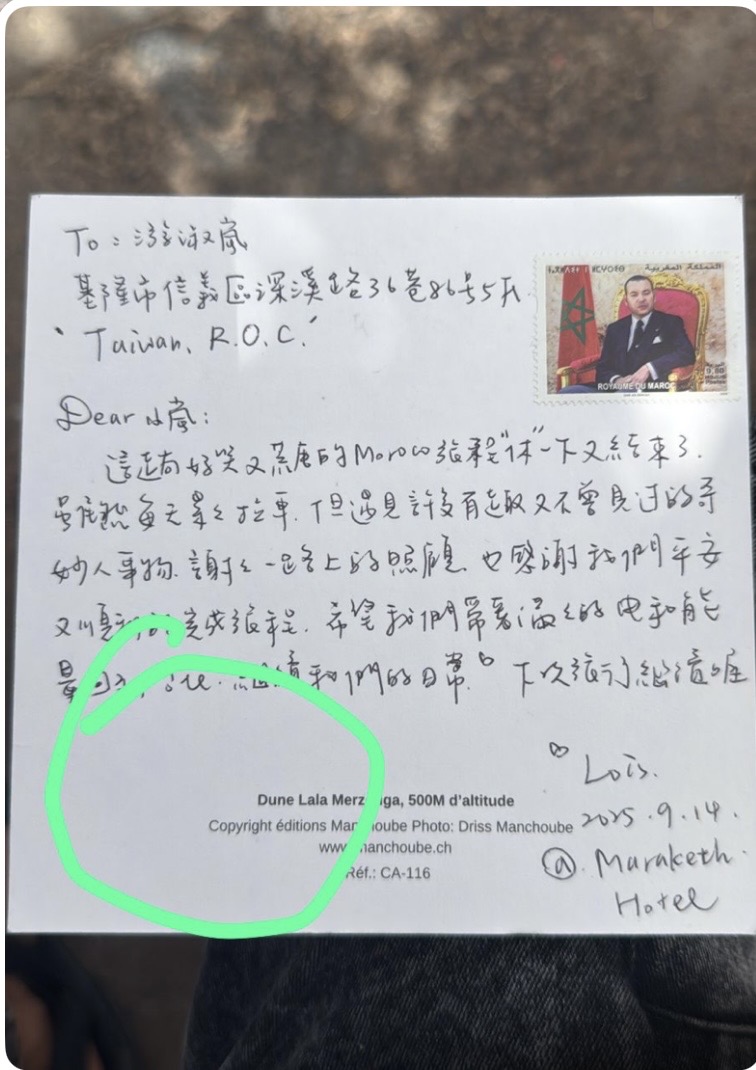 To：游淑嵐
基隆市信義區深溪路36巷86号5F
Taiwan, R.O.C.
ROYAUME DU MAROC
Dear 小嵐：
這趟好笑又荒唐的Moroco旅程"休"一下又結束了.
雖然每天累々拉車. 但遇見許多有趣又不曾見過的奇
妙人事物. 謝々一路上的照顧. 也感謝我們平安
又順利的完成旅程. 希望我們帶著滿々的电和能
量回 繼續 我們的日常. 下次旅行繼續喔
Lois.
2025.9.14.
@. Maraketh.
Hotel
Dune Lala Merzouga, 500M d'altitude
Copyright éditions Manchoube Photo: Driss Manchoube
www.manchoube.ch
Réf.: CA-116